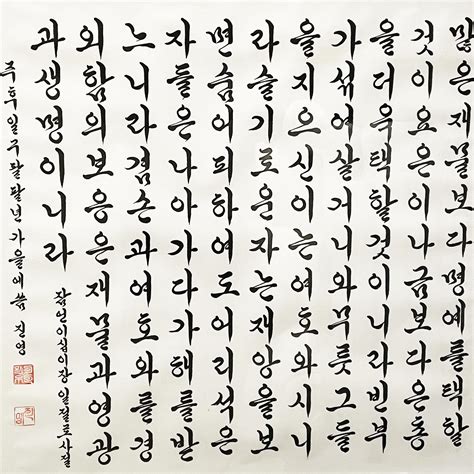 많은재물보다명예를택할
것이요은이나금보다은총
을더욱택할것이니라빈부
가섞여살거니와무릇그들
을지으신이는여호와시니
라슬기로운자는재앙을보
면숨어피하여도어리석은
자들은나아가다가해를받
느니라겸손과여호와를경
외함의보응은재물과영광
과생명이니라
잠언이십이장 일절로사절
주후일구팔팔년 가을에 씀